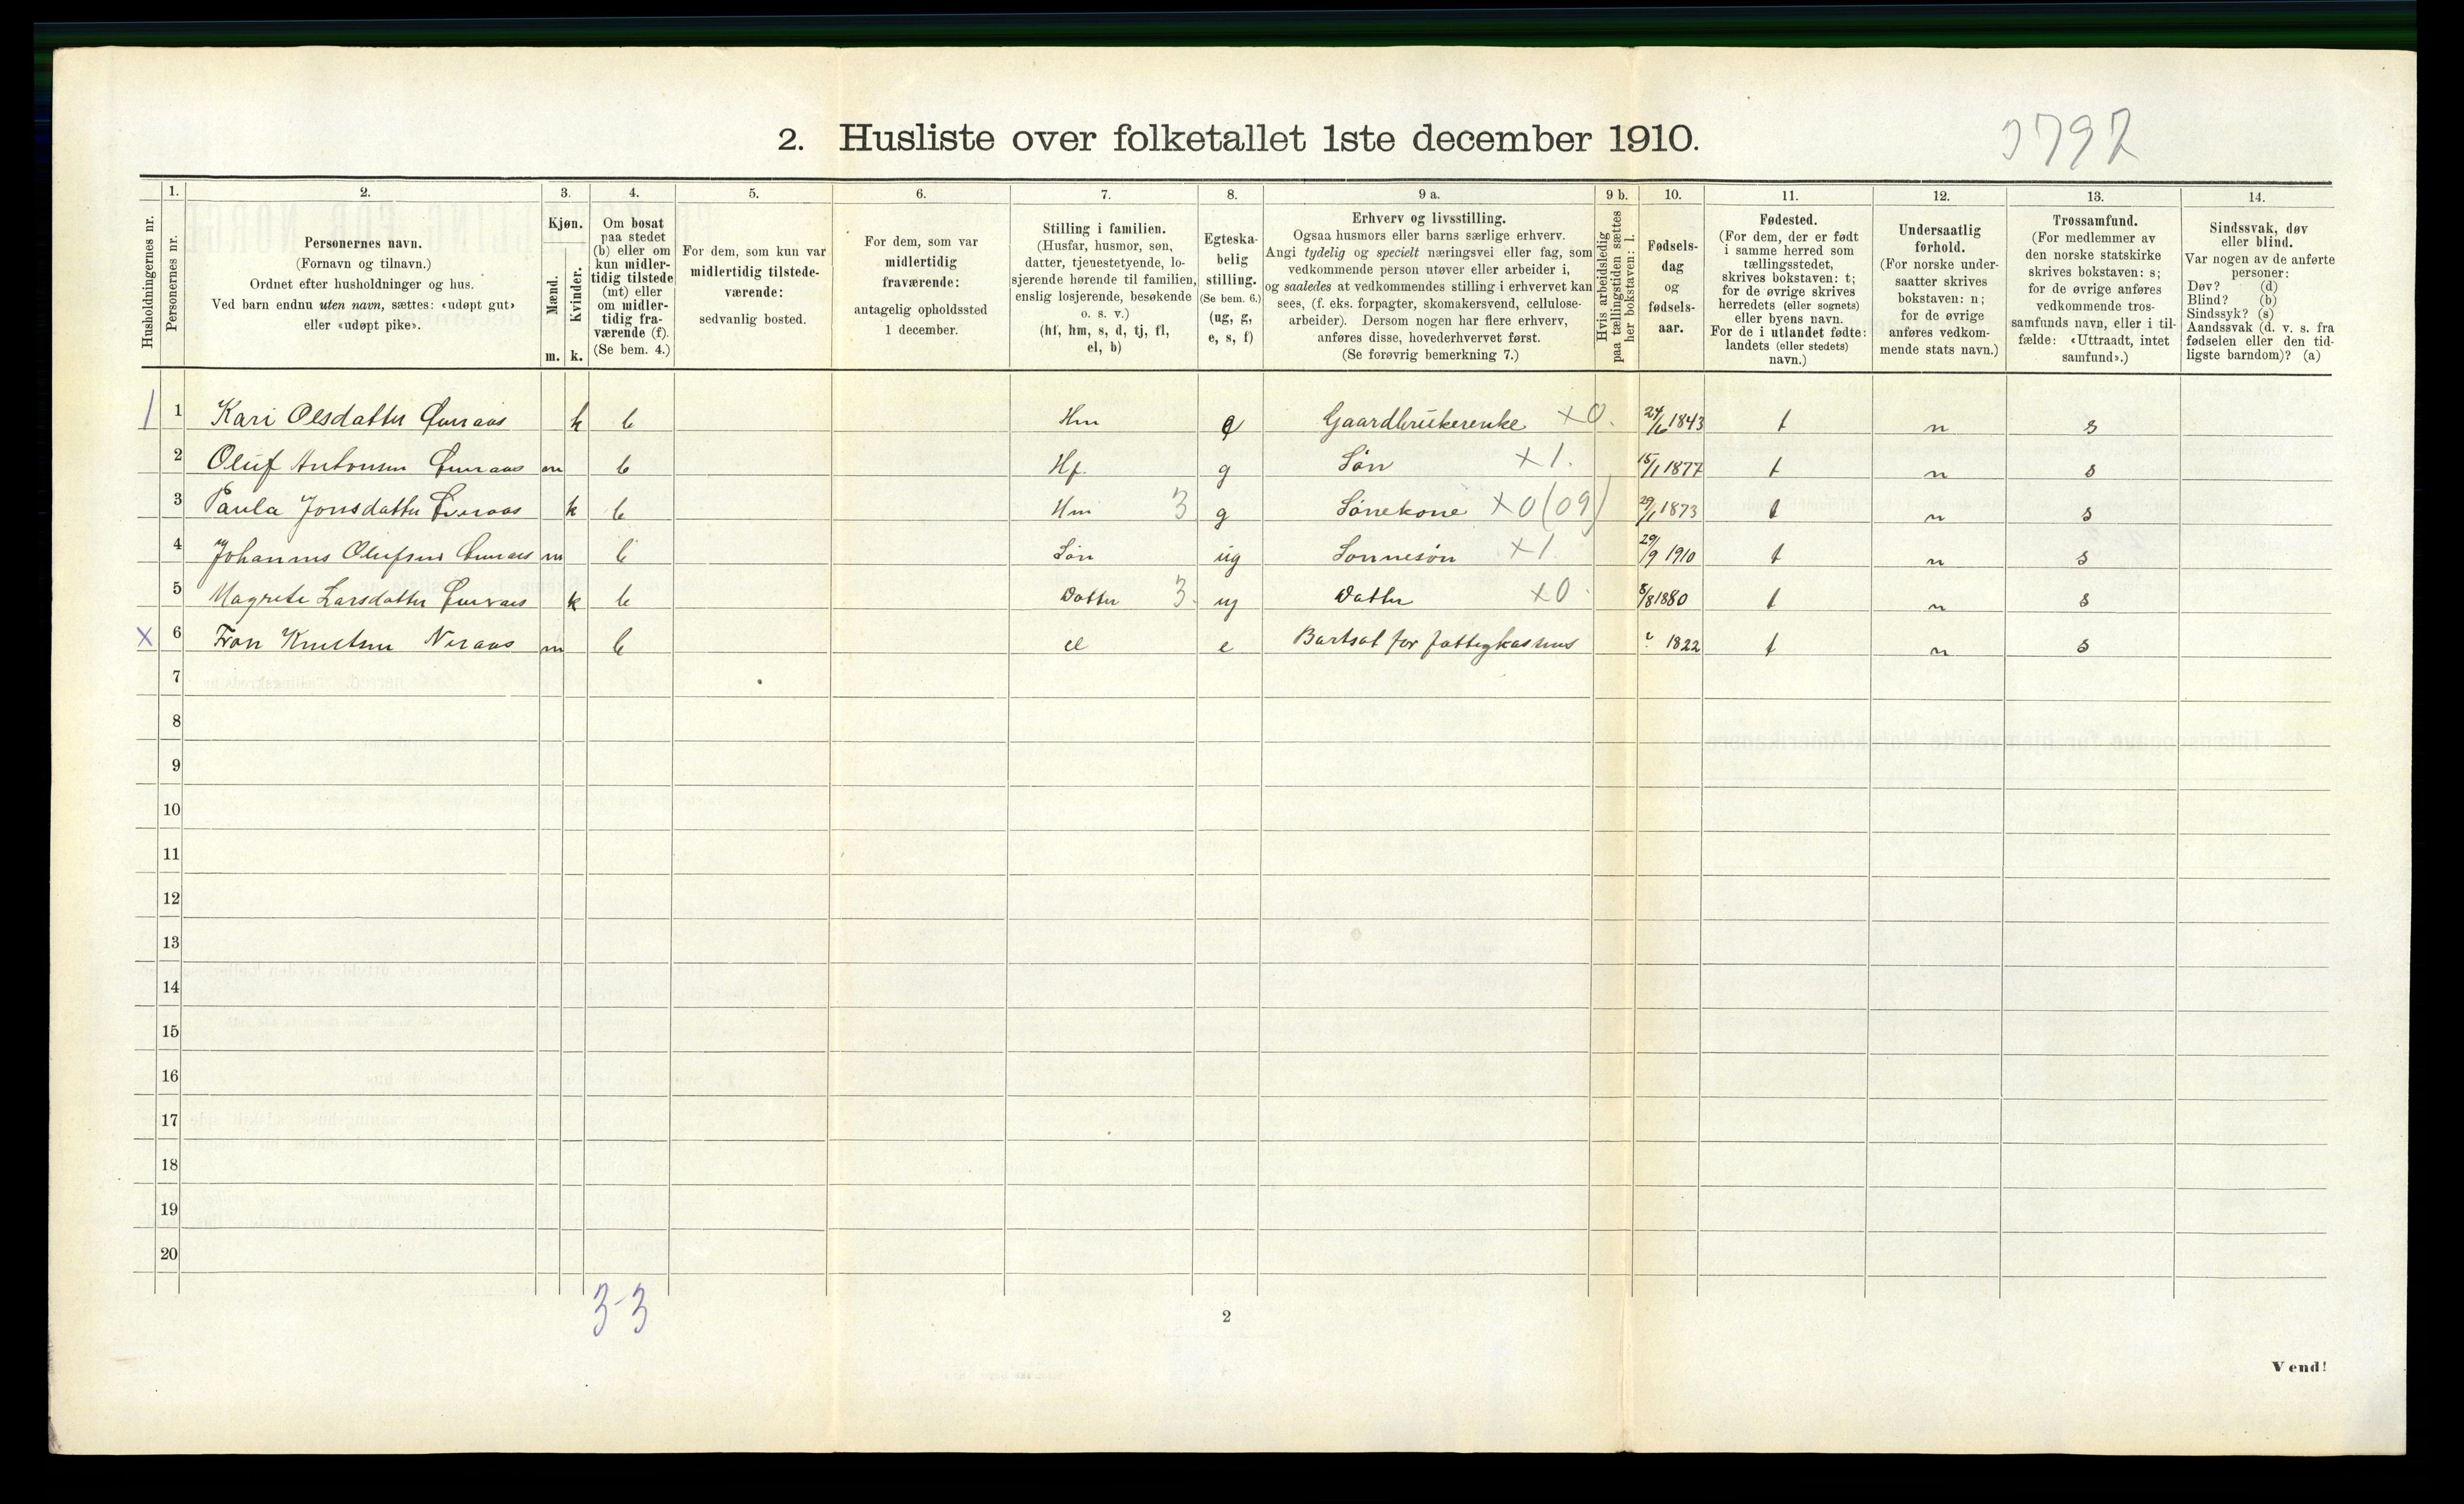 2. Husliste over folketallet 1ste december 1910.
1. 2. 3. 4. 5. 6. 7. 8. 9 a. 9 b. 10. 11. 12. 13. 14.
Husholdningernes nr.
Personernes nr.
Personernes navn.
(Fornavn og tilnavn.)
Ordnet efter husholdninger og hus.
Ved barn endnu uten navn, sættes: «udøpt gut»
eller «udøpt pike».
Kjøn.
Mænd.
Kvinder.
m. k.
Om bosat
paa stedet
(b) eller om
kun midler-
tidig tilstede
(mt) eller
om midler-
tidig fra-
værende (f).
(Se bem. 4.)
For dem, som kun var
midlertidig tilstede-
værende:
sedvanlig bosted.
For dem, som var
midlertidig
fraværende:
antagelig opholdssted
1 december.
Stilling i familien.
(Husfar, husmor, søn,
datter, tjenestetyende, lo-
sjerende hørende til familien,
enslig losjerende, besøkende
o. s. v.)
(hf, hm, s, d, tj, fl,
el, b)
Egteska-
belig
stilling.
(Se bem. 6.)
(ug, g,
e, s, f)
Erhverv og livsstilling.
Ogsaa husmors eller barns særlige erhverv.
Angi tydelig og specielt næringsvei eller fag, som
vedkommende person utøver eller arbeider i,
og saaledes at vedkommendes stilling i erhvervet kan
sees, (f. eks. forpagter, skomakersvend, cellulose-
arbeider). Dersom nogen har flere erhverv,
anføres disse, hovederhvervet først.
(Se forøvrig bemerkning 7.)
Hvis arbeidsledig
paa tællingstiden sættes
her bokstaven: l.
Fødsels-
dag
og
fødsels-
aar.
Fødested.
(For dem, der er født
i samme herred som
tællingsstedet,
skrives bokstaven: t;
for de øvrige skrives
herredets (eller sognets)
eller byens navn.
For de i utlandet fødte:
landets (eller stedets)
navn.)
Undersaatlig
forhold.
(For norske under-
saatter skrives
bokstaven: n;
for de øvrige
anføres vedkom-
mende stats navn.)
Trossamfund.
(For medlemmer av
den norske statskirke
skrives bokstaven: s;
for de øvrige anføres
vedkommende tros-
samfunds navn, eller i til-
fælde: «Uttraadt, intet
samfund».)
Sindssvak, døv
eller blind.
Var nogen av de anførte
personer:
Døv? (d)
Blind? (b)
Sindssyk? (s)
Aandssvak (d. v. s. fra
fødselen eller den tid-
ligste barndom)? (a)
1 Kari Olsdatter k b Hm Gaardbrukerenke x0. 24/6 1843 t n s
2 Oluf Antonsen m b Hf. g Søn x1. 15/1 1877 t n s
3 Paula Jonsdatter k b Hm 3 g Sønekone x0 (09) 29/1 1873 t n s
4 Johannes Olufsen m b Søn ug Sonnesøn x1. 29/9 1910 t n s
5 Magrete Larsdatter k b Datter 3. ug Datter x0. 8/8 1880 t n s
x 6 m b el e Bortsat for fattigkassens 1822 t n s
7
8
9
10
11
12
13
14
15
16
17
18
19
20
3-3
2
Vend!